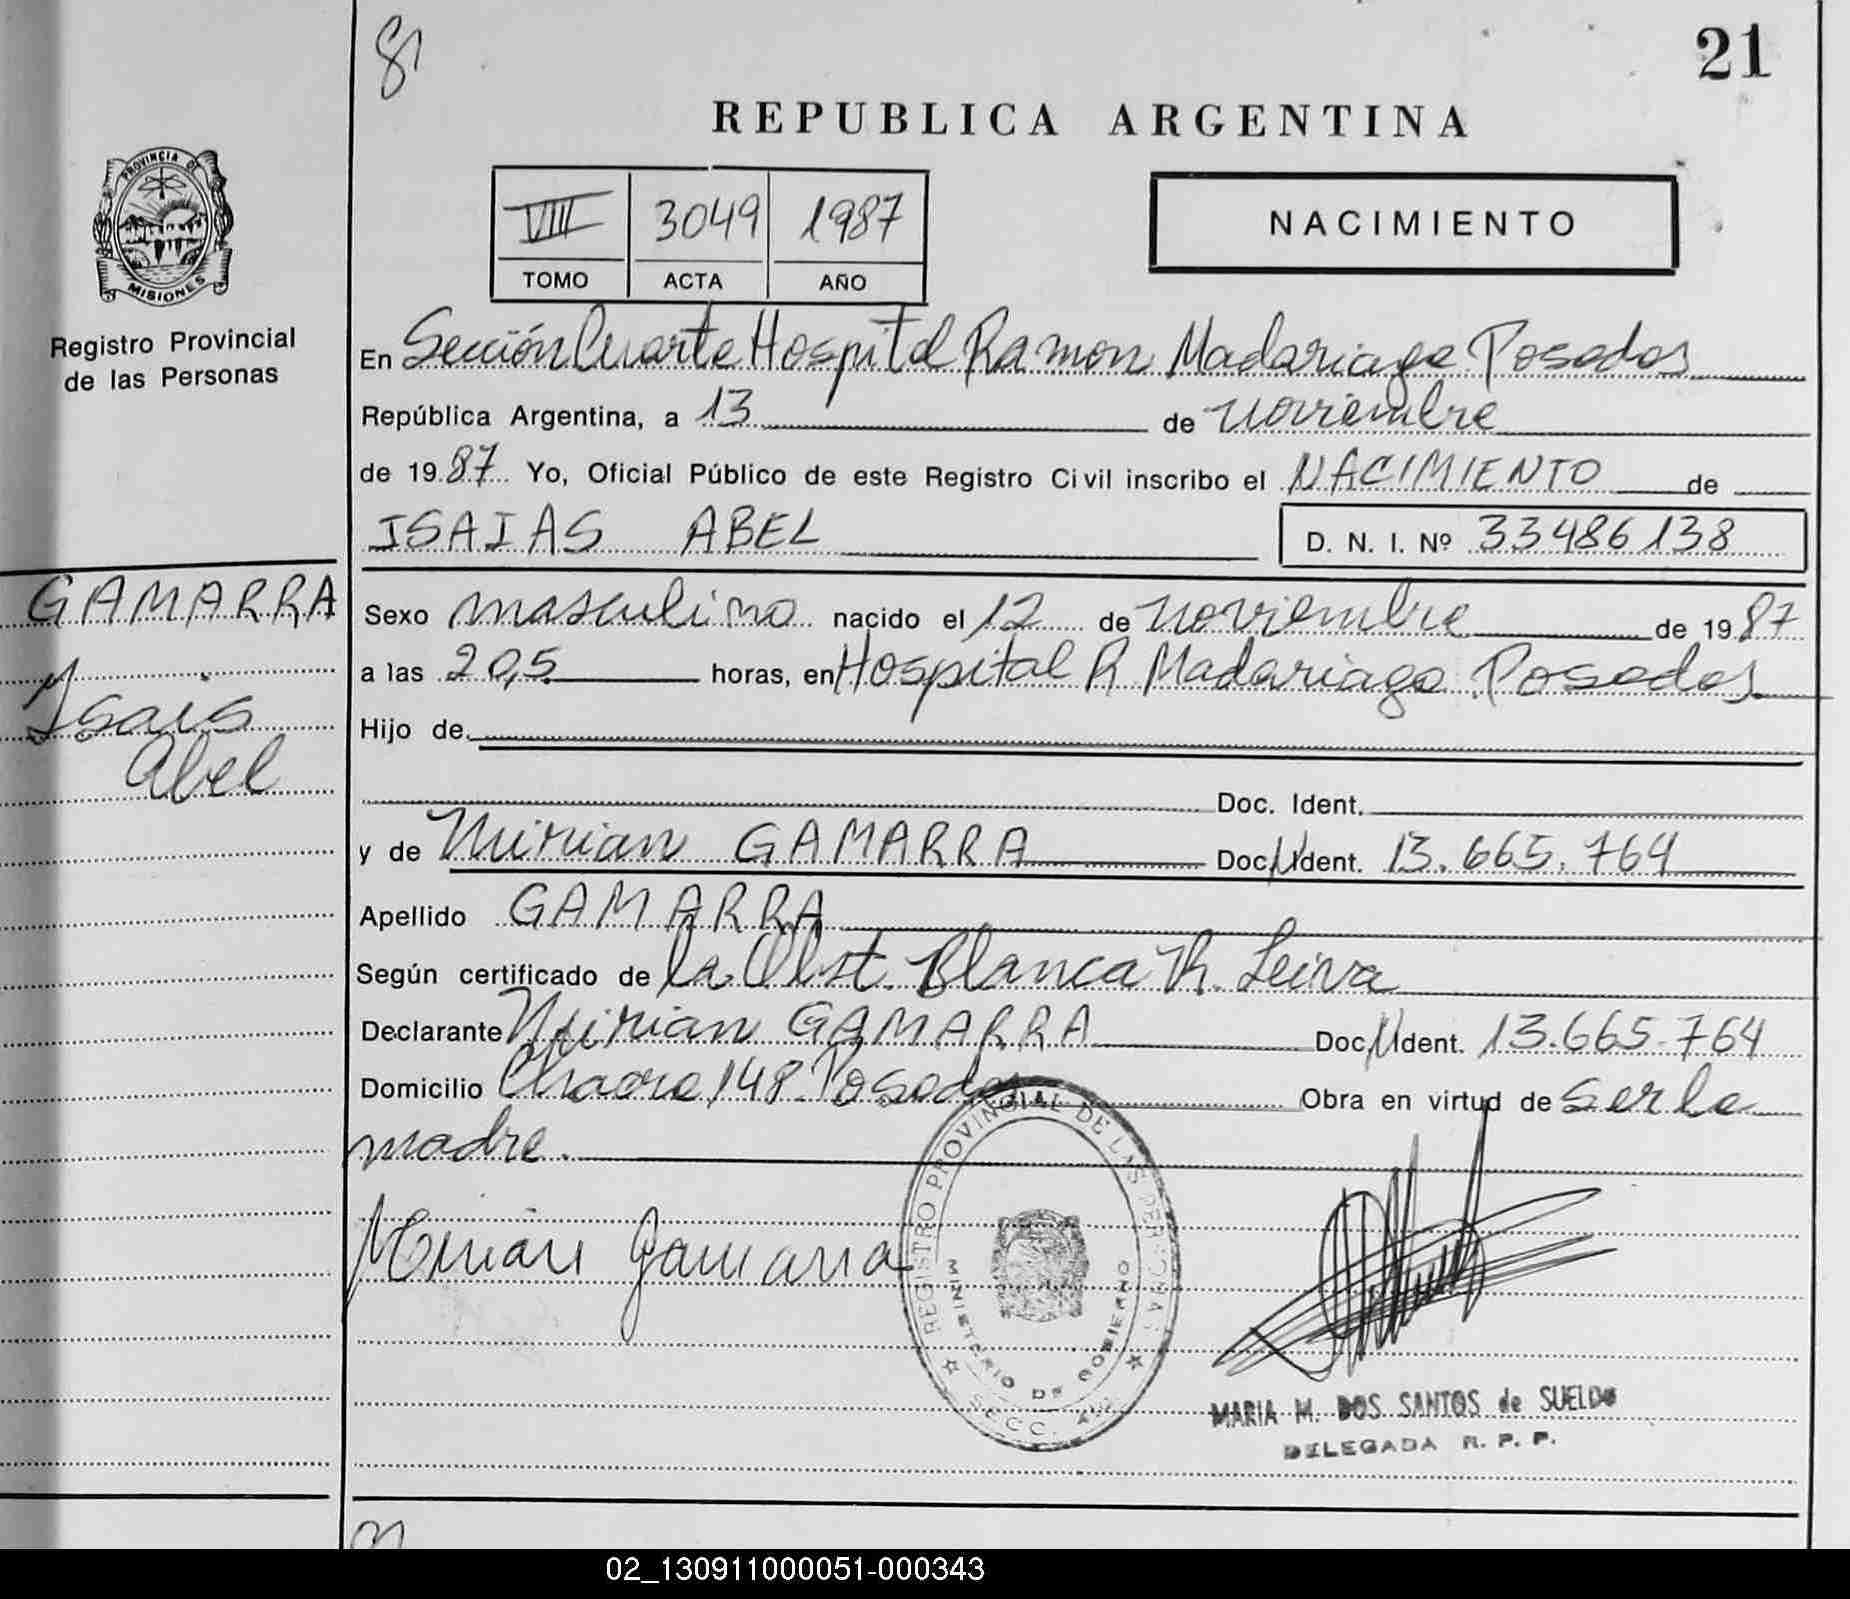 81
21
REPUBLICA ARGENTINA
PROVINCIA DE
MISIONES
Registro Provincial
de las Personas
VIII 3049 1987
TOMO ACTA AÑO
NACIMIENTO
En Sección Cuarta Hospital Ramon Madariaga Posadas
República Argentina, a 13 de noviembre
de 19 87 Yo, Oficial Público de este Registro Civil inscribo el NACIMIENTO de
ISAIAS ABEL D. N. I. Nº 33486138
GAMARRA
Isais
Abel
Sexo masculino nacido el 12 de noviembre de 19 87
a las 20,5 horas, en Hospital R Madariaga Posadas
Hijo de
Doc. Ident.
y de Mirian GAMARRA Doc. Ident. 13.665.764
Apellido GAMARRA
Según certificado de la Obst. Blanca R. Leiva
Declarante Mirian GAMARRA Doc. Ident. 13.665.764
Domicilio Chacra 148 Posadas Obra en virtud de ser la
madre.
Mirian Gamarra
REGISTRO PROVINCIAL DE LAS PERSONAS
MINISTERIO DE GOBIERNO
SECC. 4ta
MARIA M. DOS SANTOS de SUELDO
DELEGADA R. P. P.
02_130911000051-000343